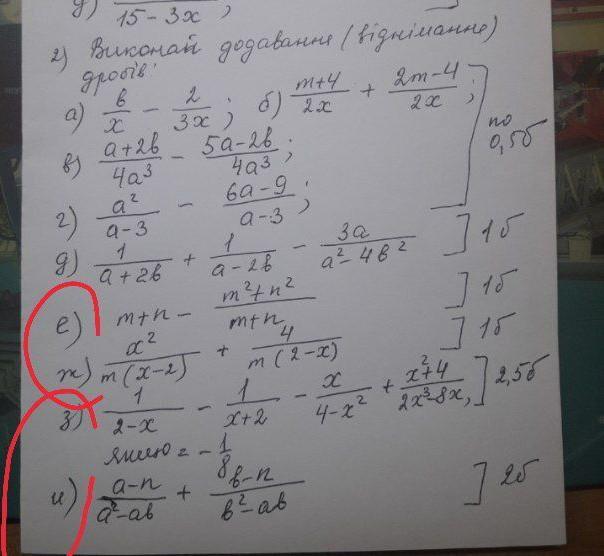 д) 15 - 3x ;
2) Виконай додавання (віднімання)
дробів:
а) в/x - 2/3x ; б) (m+4)/2x + (2m-4)/2x ; по 0,5б
в) (a+2в)/4a³ - (5a-2в)/4a³ ;
г) a²/(a-3) - (6a-9)/(a-3) ;
д) 1/(a+2в) + 1/(a-2в) - 3a/(a²-4в²) ] 1б
е) m+n - (m²+n²)/(m+n) ] 1б
ж) x²/m(x-2) + 4/m(2-x) ] 1б
з) 1/(2-x) - 1/(x+2) - x/(4-x²) + (x²+4)/(2x³-8x), ] 2,5б
якщо = - 1/8
и) (a-n)/(a²-ab) + (в-n)/(в²-ab) ] 2б